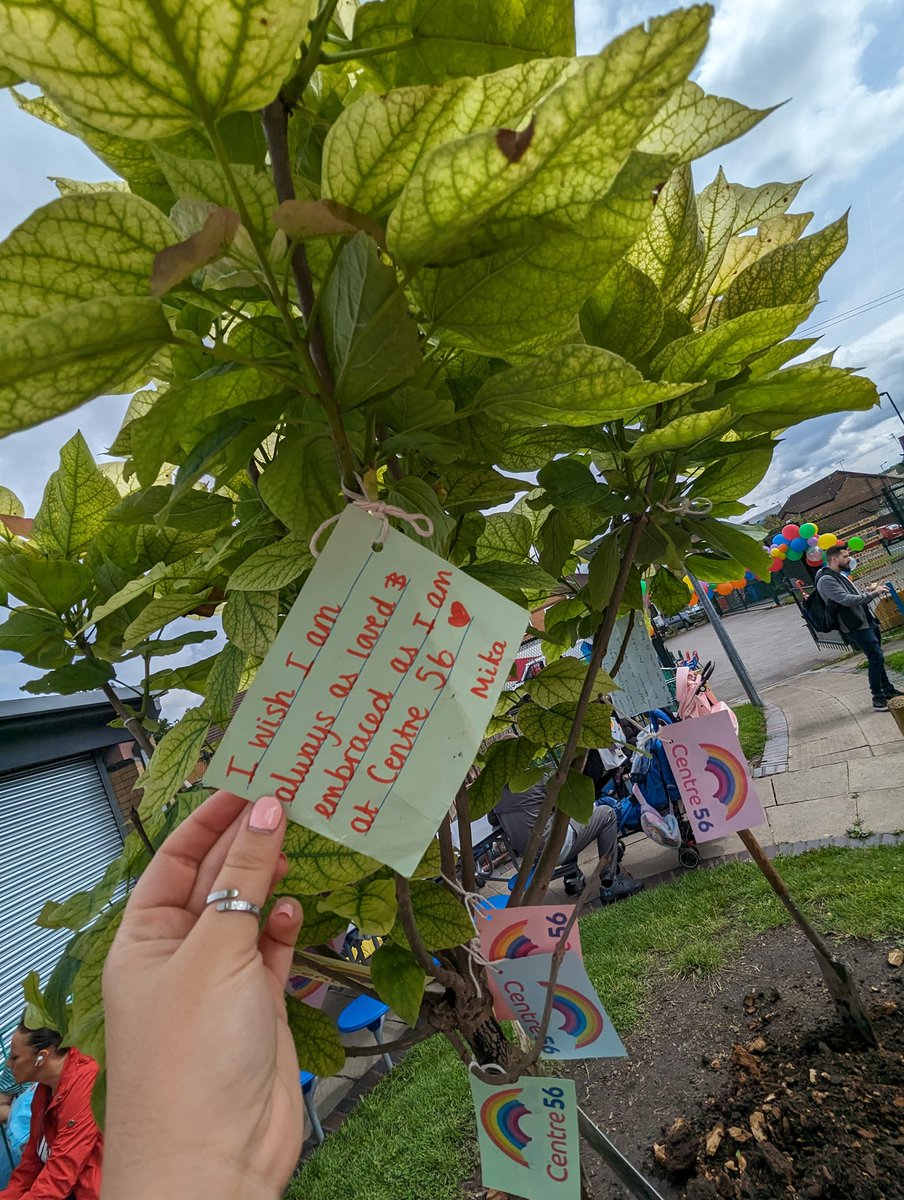 I wish I am
always as loved &
embraced as I am
at Centre 56 ❤
Mika
Centre 56
Centre 56
Centre 56
Centre 56